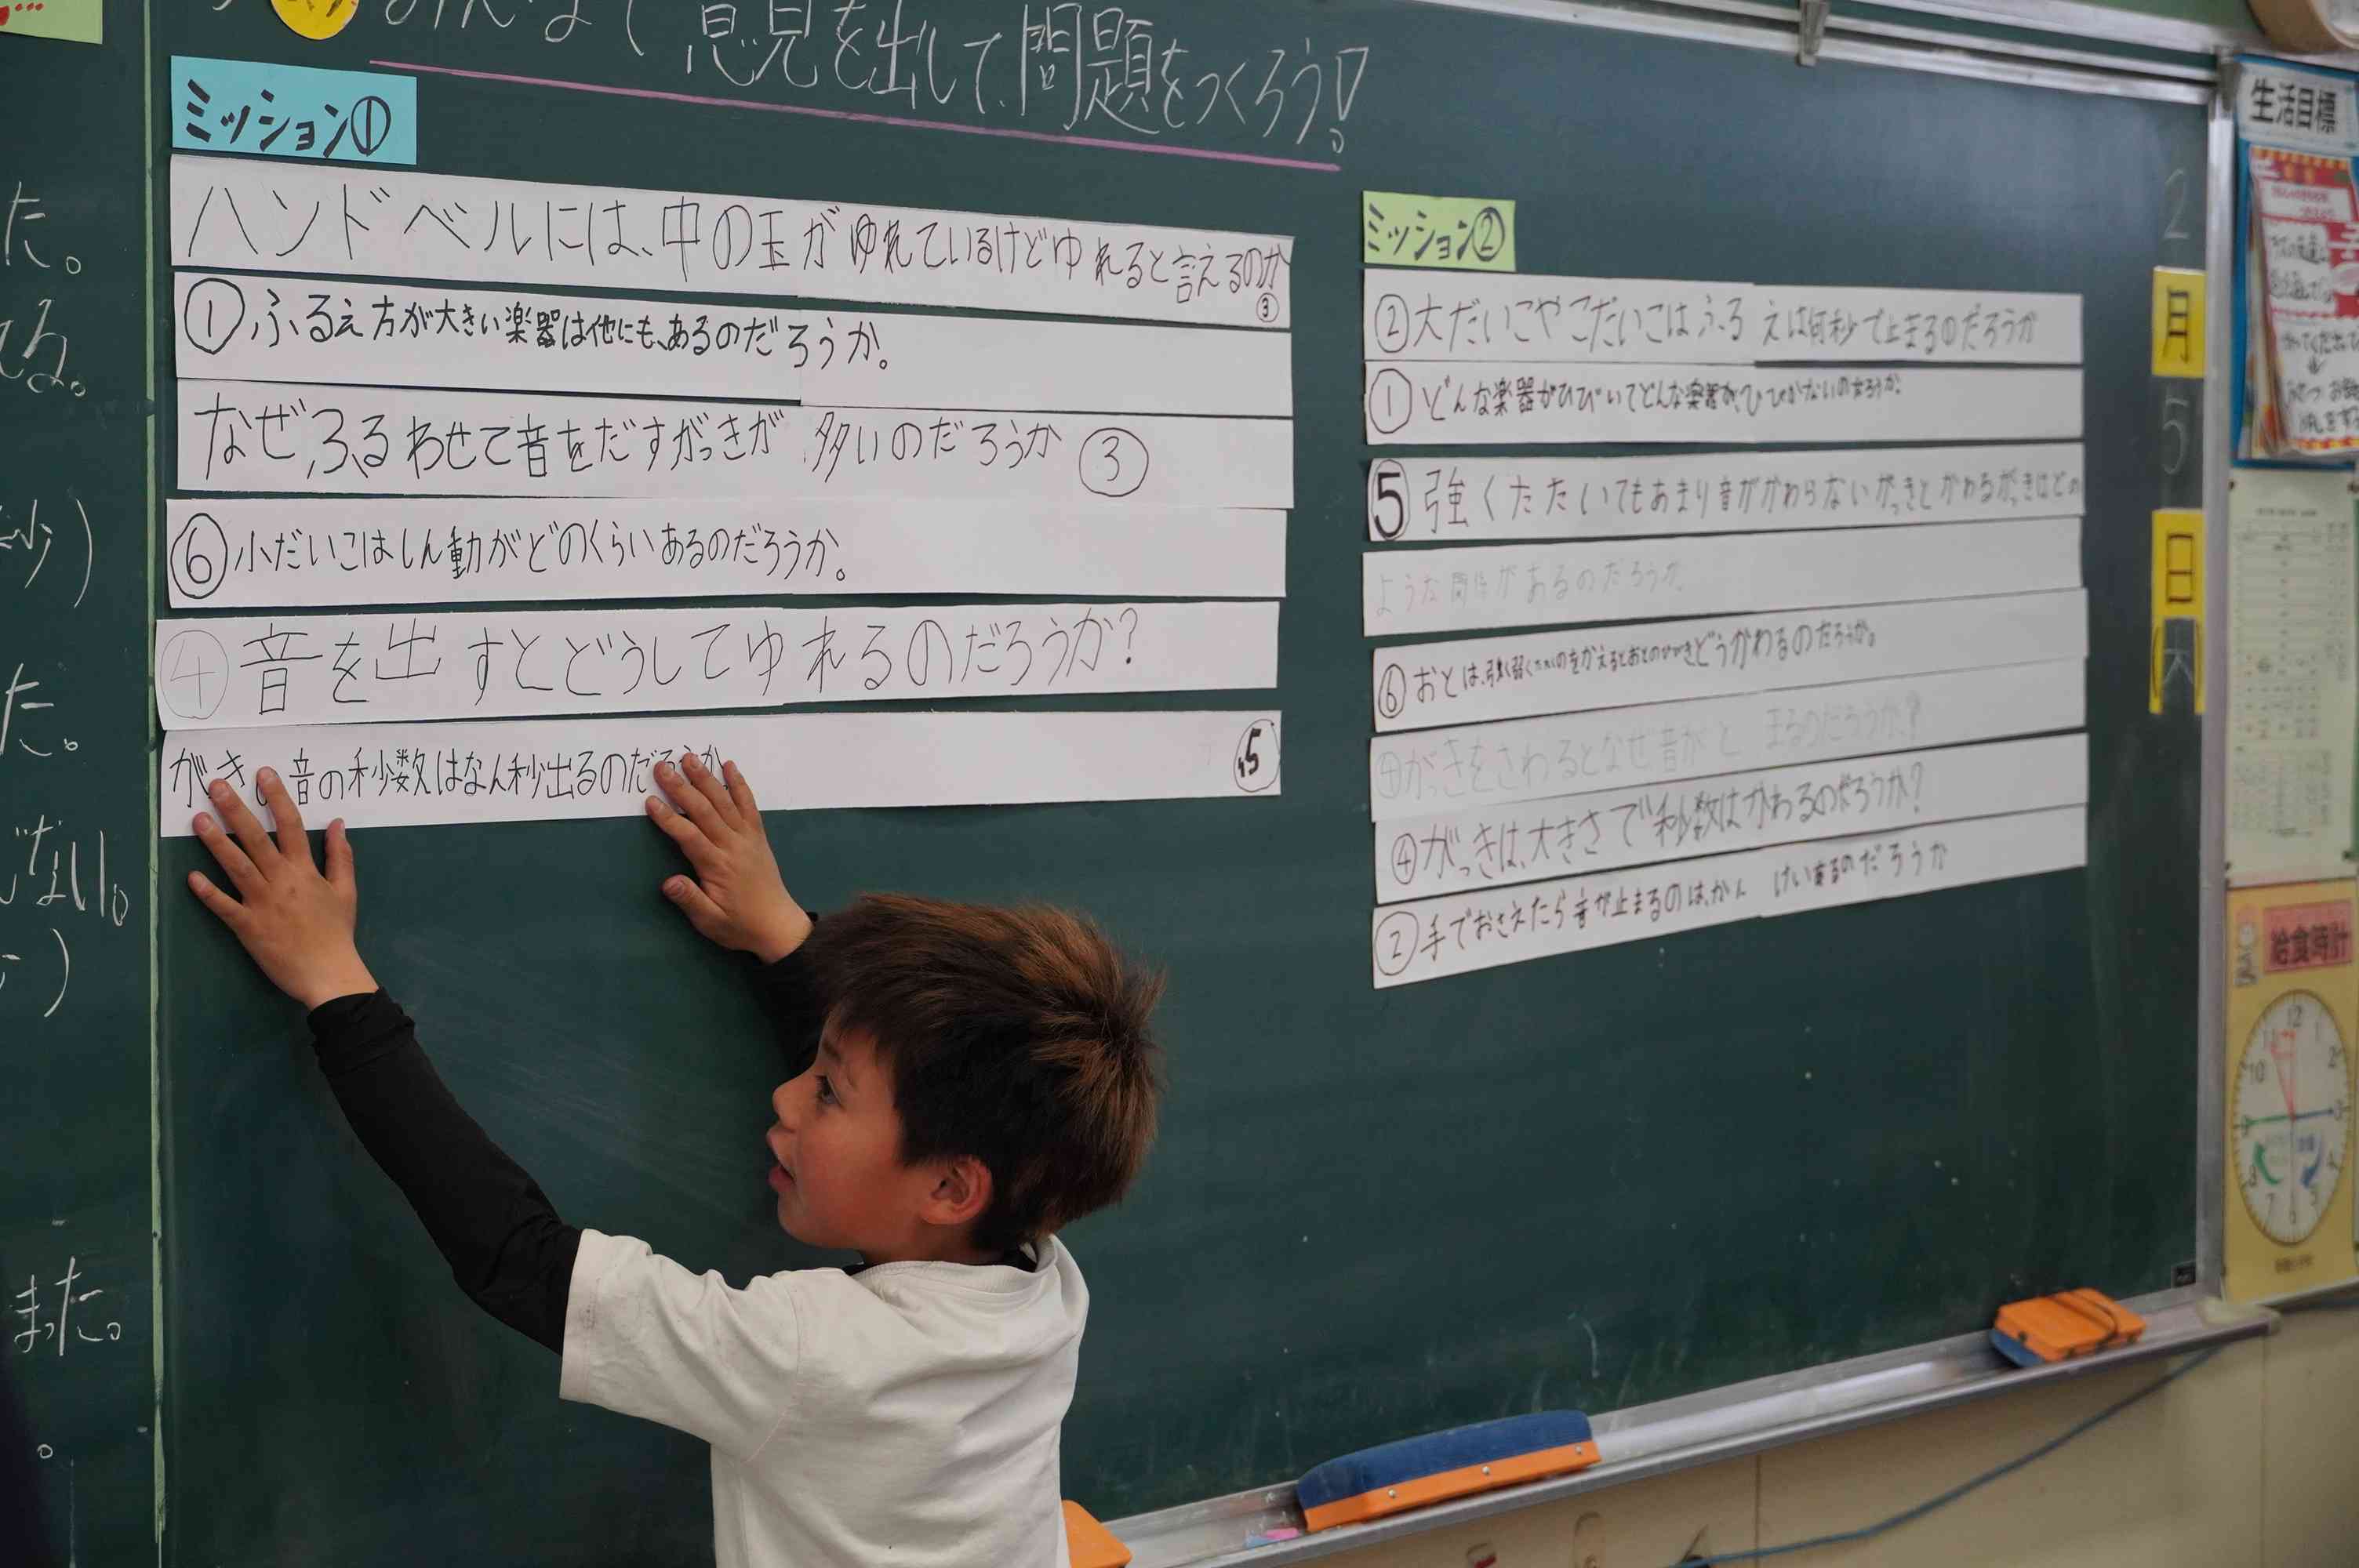 みんなで意見を出して、問題をつくろう!
ミッション①
ハンドベルには、中の玉がゆれているけどゆれると言えるのか
③
①ふるえ方が大きい楽器は他にも、あるのだろうか。
なぜ、ふるわせて音をだすがっきが多いのだろうか ③
⑥小だいこはしん動がどのくらいあるのだろうか。
④音を出すとどうしてゆれるのだろうか?
がっきの音の秒数はなん秒出るのだろうか。 5
ミッション②
②大だいこやこだいこはふるえは何秒で止まるのだろうか
①どんな楽器がひびいてどんな楽器が、ひびかないのだろうか?
⑤強くたたいてもあまり音がかわらないがっきとかわるがっきはどの
ような関係があるのだろうか。
⑥おとは、強く弱くたたくのをかえるとおとのひびきどうかわるのだろうか。
④がっきをさわるとなぜ音がとまるのだろうか?
④がっきは、大きさで秒数はかわるのだろうか?
②手でおさえたら音が止まるのは、かんけいあるのだろうか
2
月
5
日
た。
てる。
秒)
た。
じない。
)
また。
生活目標
給食時計
12
1
2
3
4
5
6
7
8
10
11